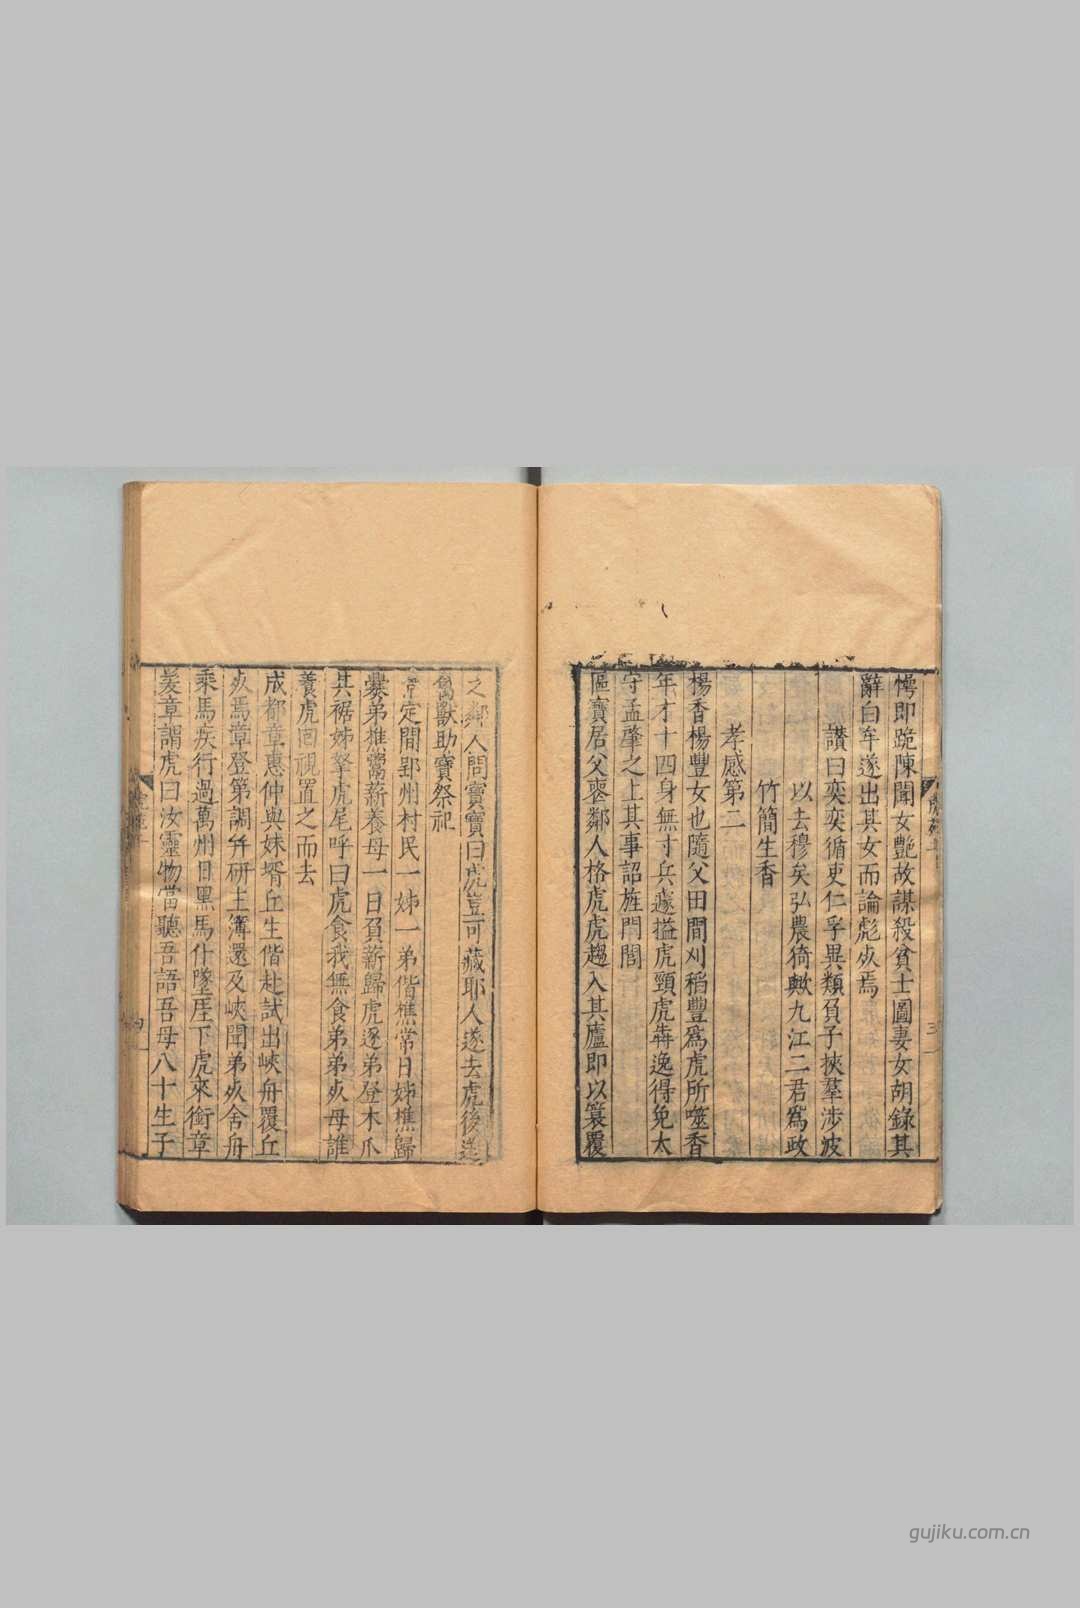 愕即跪陳聞女艷故謀殺貧士圖妻女胡錄其
辭白牟遂出其女而論彪死焉
讚曰奕奕循吏仁孚異類負子挾羣涉波
以去穆矣弘農猗歟九江二君爲政
竹簡生香
孝感第二
楊香楊豐女也隨父田間刈稻豐爲虎所噬香
年才十四身無寸兵遽搤虎頸虎犇逸得免太
守孟肇之上其事詔旌門閭
區寶居父喪鄰人格虎虎趨入其廬即以簑覆
之鄰人問寶寶曰虎豈可藏耶人遂去虎後送
禽獸助寶祭祀
定間郢州村民一姊一弟偕樵常日姊樵歸
爨弟推鬻薪養母一日負薪歸虎逐弟登木爪
其裾姊拏虎尾呼曰虎食我無食弟弟死母誰
養虎回視置之而去
成都章惠仲與妹壻丘生偕赴試出峽舟覆丘
死焉章登第調幷研主簿還及峽聞弟死舍舟
乘馬疾行過萬州日黑馬仆墜崖下虎來銜章
髮章謂虎曰汝靈物當聽吾語吾母八十生子
三
gujiku.com.cn